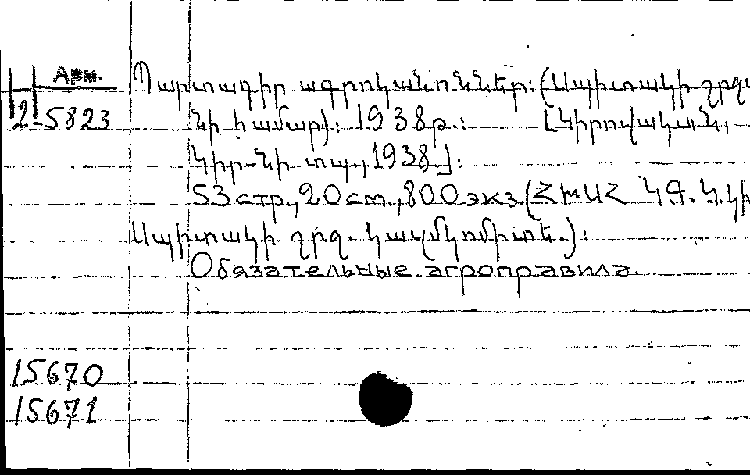 Арм.
12-5823
Պարտադիր ագրոկանոններ: (Սպիտակի շրջա
նի համար): 1938թ.: [Կիրովական,
Կիր-նի տպ., 1938]:
53 стр., 20 ст., 800 экз. (ՀԽՍՀ ԿԳ. Կ.կի
Սպիտակի շրջ. կազմկոմիտե.):
Обязательные агроправила
15670
15671